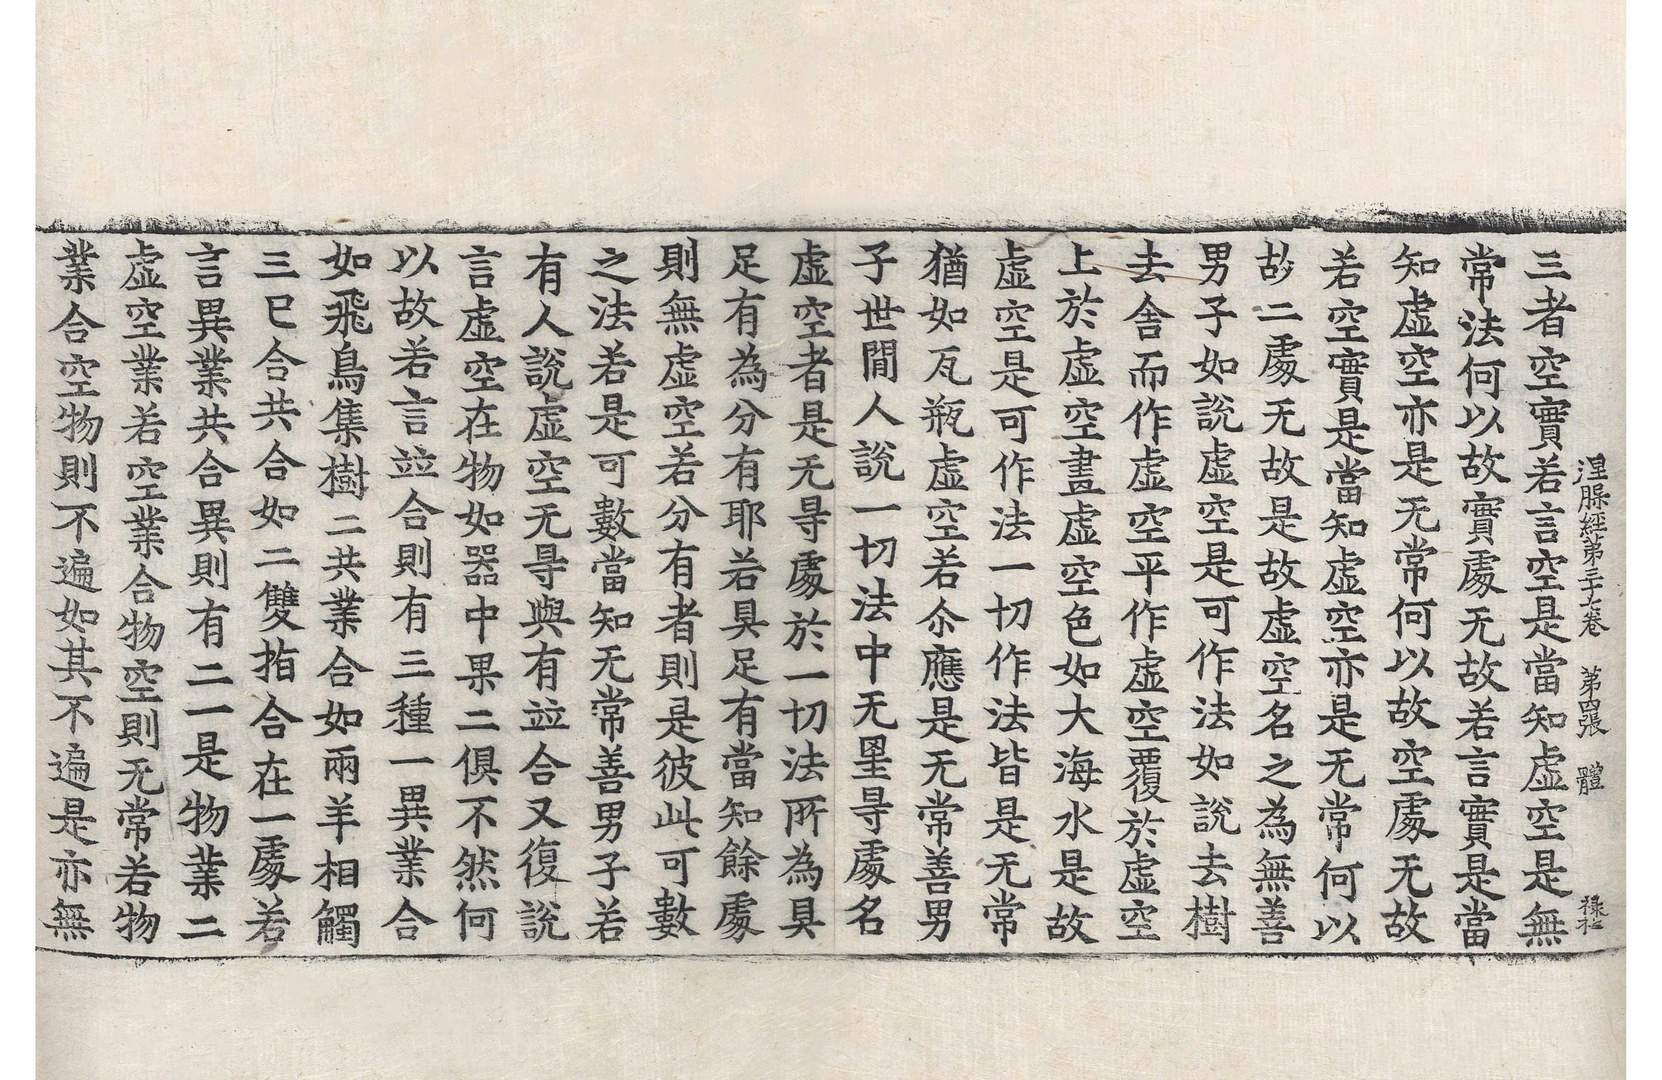 涅槃經第三十七卷　第四張　體　祿柱
三者空實若言空是當知虛空是無
常法何以故實處无故若言實是當
知虛空亦是无常何以故空處无故
若空實是當知虛空亦是无常何以
故二處无故是故虛空名之為無善
男子如說虛空是可作法如說去樹
去舍而作虛空平作虛空覆於虛空
上於虛空畫虛空色如大海水是故
虛空是可作法一切作法皆是无常
猶如瓦瓶虛空若尒應是无常善男
子世間人說一切法中无罣㝵處名
虛空者是无㝵處於一切法所為具
足有為分有耶若具足有當知餘處
則無虛空若分有者則是彼此可數
之法若是可數當知无常善男子若
有人說虛空无㝵與有並合又復說
言虛空在物如器中果二俱不然何
以故若言並合則有三種一異業合
如飛鳥集樹二共業合如兩羊相觸
三巳合共合如二雙指合在一處若
言異業共合異則有二一是物業二
虛空業若空業合物空則无常若物
業合空物則不遍如其不遍是亦無